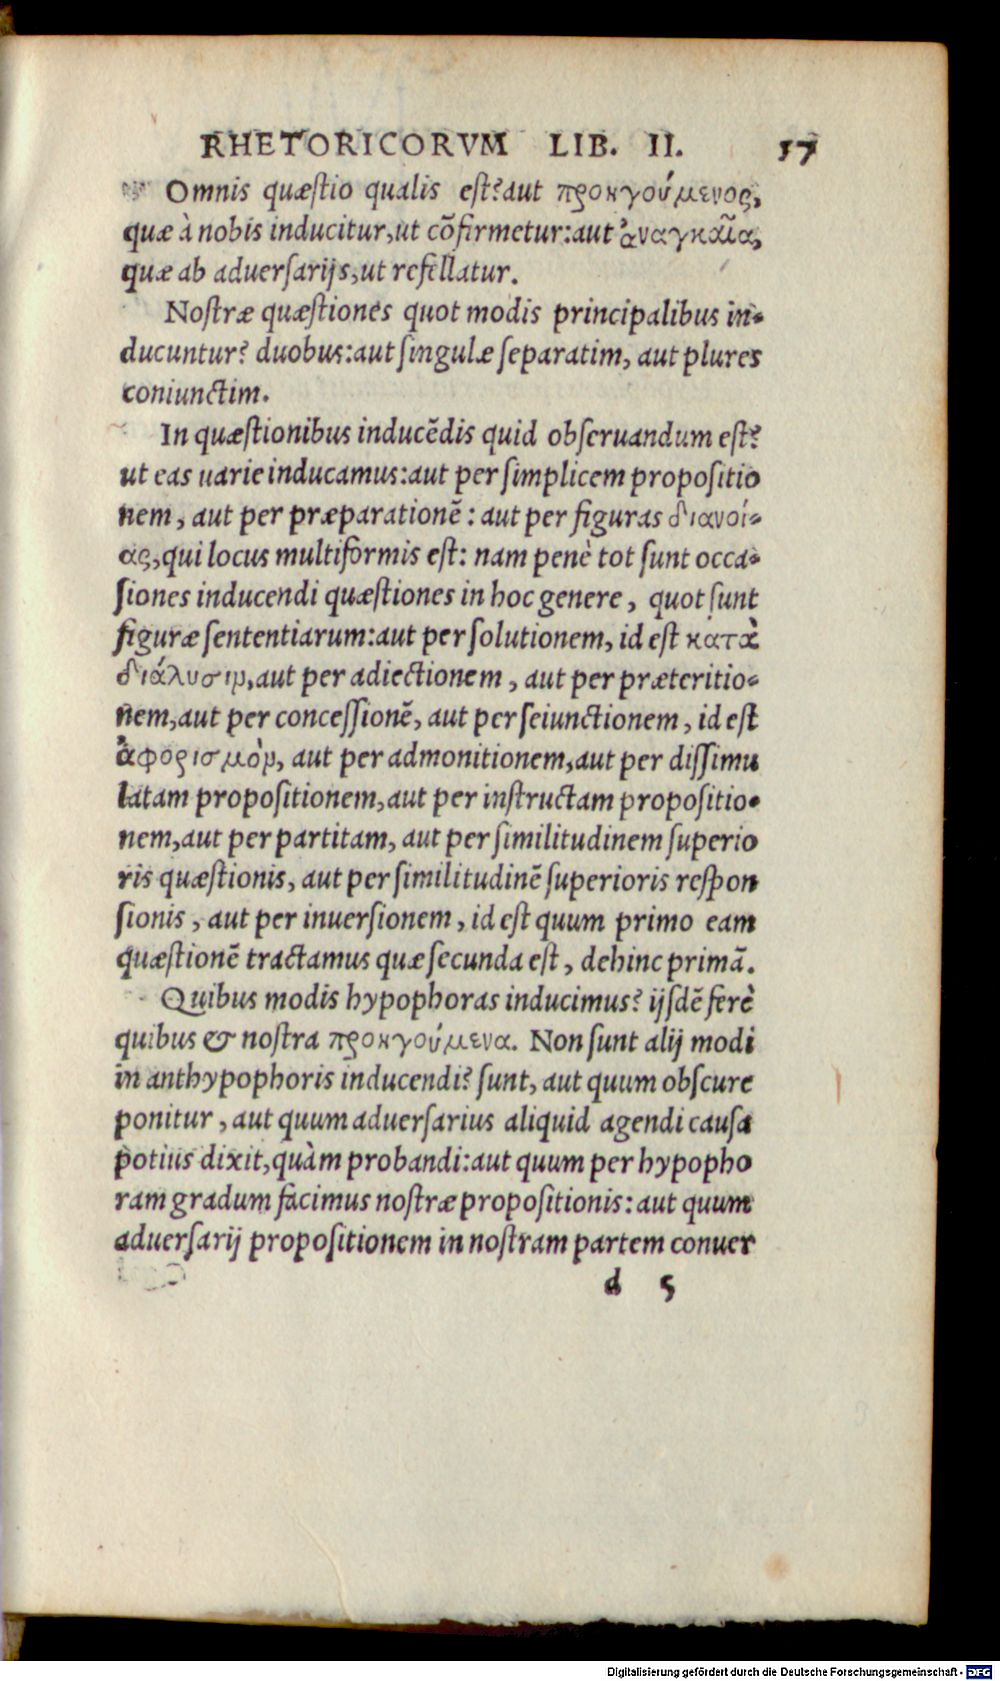 RHETORICORVM LIB. II. 57
Omnis quæstio qualis est? aut προηγούμενος,
quæ à nobis inducitur, ut cōfirmetur: aut ἀναγκαῖα,
quæ ab aduersarijs, ut refellatur.
Nostræ quæstiones quot modis principalibus in-
ducuntur? duobus: aut singulæ separatim, aut plures
coniunctim.
In quæstionibus inducēdis quid obseruandum est?
ut eas uarie inducamus: aut per simplicem propositio
nem, aut per præparationē: aut per figuras διανοί-
ας, qui locus multiformis est: nam penè tot sunt occa-
siones inducendi quæstiones in hoc genere, quot sunt
figuræ sententiarum: aut per solutionem, id est κατὰ
διάλυσιν, aut per adiectionem, aut per præteritio-
nem, aut per concessionē, aut per seiunctionem, id est
ἀφορισμὸν, aut per admonitionem, aut per dissimu
latam propositionem, aut per instructam propositio-
nem, aut per partitam, aut per similitudinem superio
ris quæstionis, aut per similitudinē superioris respon
sionis, aut per inuersionem, id est quum primo eam
quæstionē tractamus quæ secunda est, dehinc primā.
Quibus modis hypophoras inducimus? ijsdē ferè
quibus & nostra προηγούμενα. Non sunt alij modi
in anthypophoris inducendi? sunt, aut quum obscure
ponitur, aut quum aduersarius aliquid agendi causa
potius dixit, quàm probandi: aut quum per hypopho
ram gradum facimus nostræ propositionis: aut quum
aduersarij propositionem in nostram partem conuer
d 5
Digitalisierung gefördert durch die Deutsche Forschungsgemeinschaft - DFG